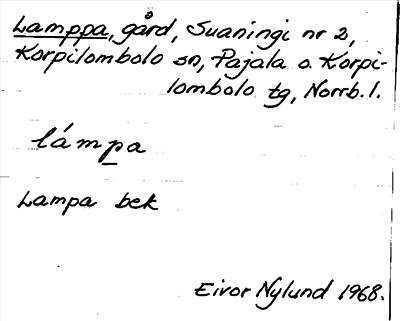 Lamppa, gård, Suaningi nr 2,
Korpilombolo sn, Pajala o. Korpi-
lombolo tg, Norrb. l.
lámpa
Lampa bek
Eivor Nylund 1968.